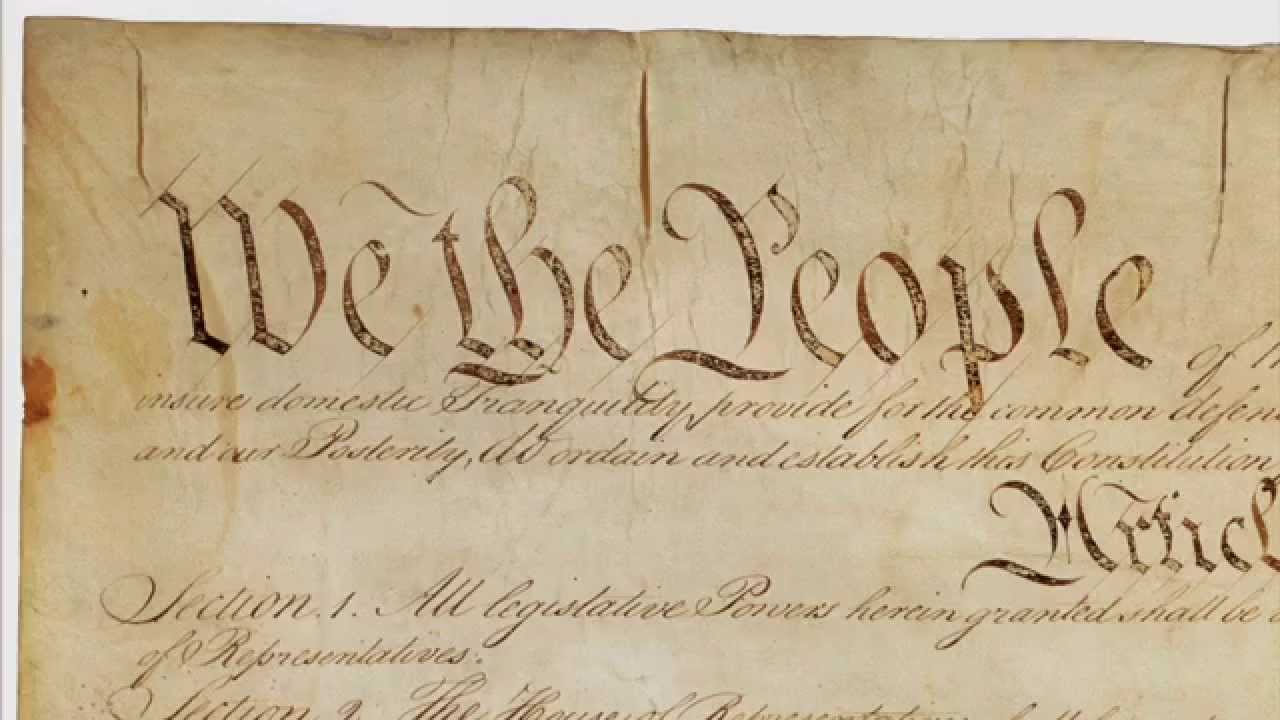 We the People of th
insure domestic Tranquility, provide for the common defen
and our Posterity, do ordain and establish this Constitution
Articl
Section. 1. All legislative Powers herein granted shall be
of Representatives.
Section. 2. The House of Representatives